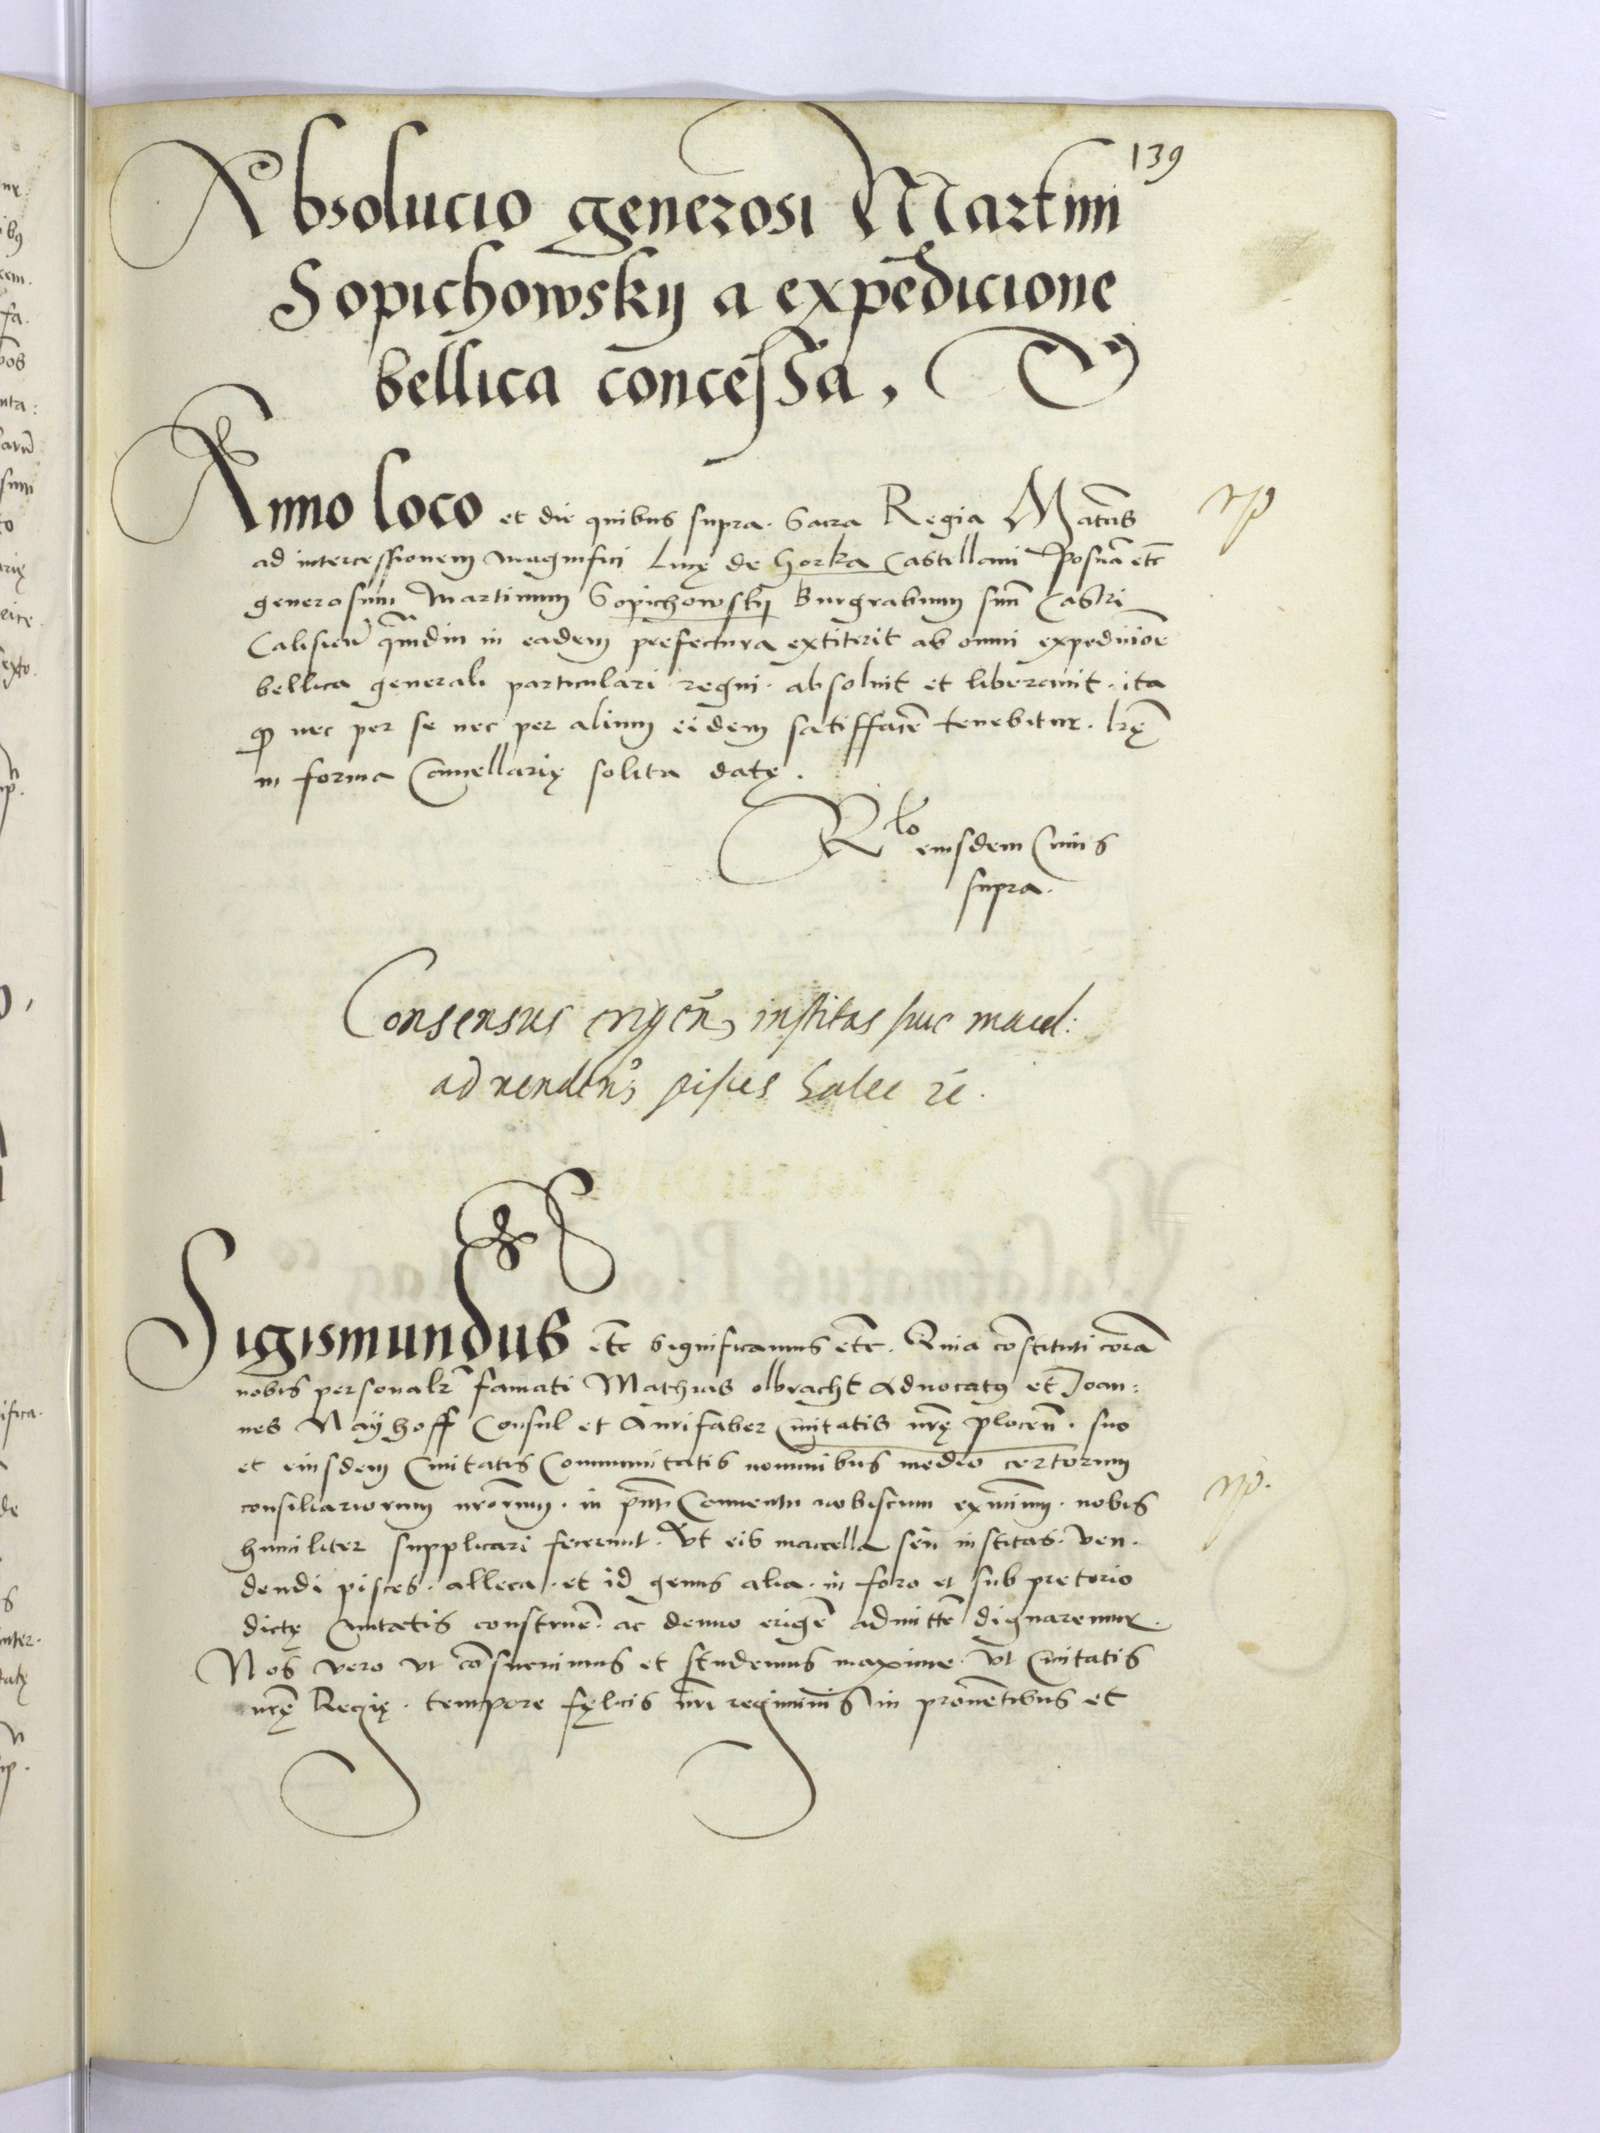 139
Absolucio generosi Martini
Sopichowskij a expedicione
bellica concessa,
Anno loco et die quibus supra. Sacra Regia Matas
ad intercessionem magnifici Lucę de Horka Castellani Posnan etc
generosum Martinum Sopichowskij Burgrabium suum Castri
Calisien quamdiu in eadem prefectura extiterit ab omni expedicione
bellica generali particulari regni. absoluit et liberauit. ita
quod nec per se nec per alium eidem satisffacere tenebitur. lrę
in forma Cancellarię solita datę.
Rlo eiusdem cuius
supra.
Consensus erigen institas siue macel:
ad venden pisces halec etc.
Sigismundus etc significamus etc. Quia constituti coram
nobis personalr famati Mathias olbracht Aduocatus et Joan:
nes Nayhoff Consul et Aurifaber Ciuitatis nrę plocen. suo
et eiusdem Ciuitatis Communitatis nominibus medio certorum
consiliariorum nrorum. in pnti Conuentu nobiscum exnmium. nobis
humiliter supplicari fecerunt. Vt eis macella seu institas. ven.
dendi pisces. alleca. et id genus alia. in foro et sub pretorio
dictę Ciuitatis construe. ac denuo erige admitte dignaremur.
Nos vero vt consueuimus et studemus maxime. Vt Ciuitatis
nrę Regię. tempore fęlicis nri regiminis in prouentibus et